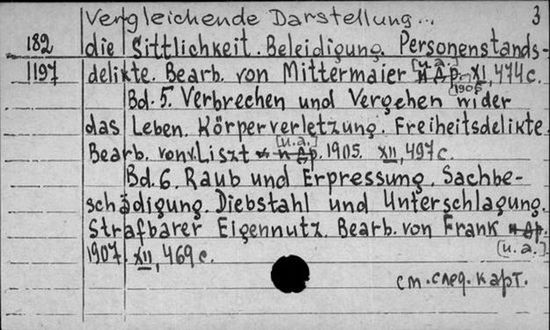 Vergleichende Darstellung... 3
182 die Sittlichkeit. Beleidigung. Personenstands-
1197 delikte. Bearb. von Mittermaier [u.a.] и др. 1906 XI, 474 с.
Bd. 5. Verbrechen und Vergehen wider
das Leben. Körperverletzung. Freiheitsdelikte.
Bearb. von v. Liszt [u.a.] и др. 1905. XII, 497 с.
Bd. 6. Raub und Erpressung. Sachbe-
schädigung. Diebstahl und Unterschlagung.
Strafbarer Eigennutz. Bearb. von Frank и др.
1907. XII, 469 с. [u.a.]
см. след. карт.